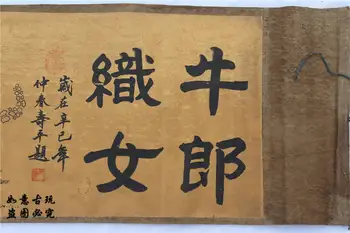 牛郎
織女
歲在辛巳年
仲春壽平題
如意古玩
盗图必究